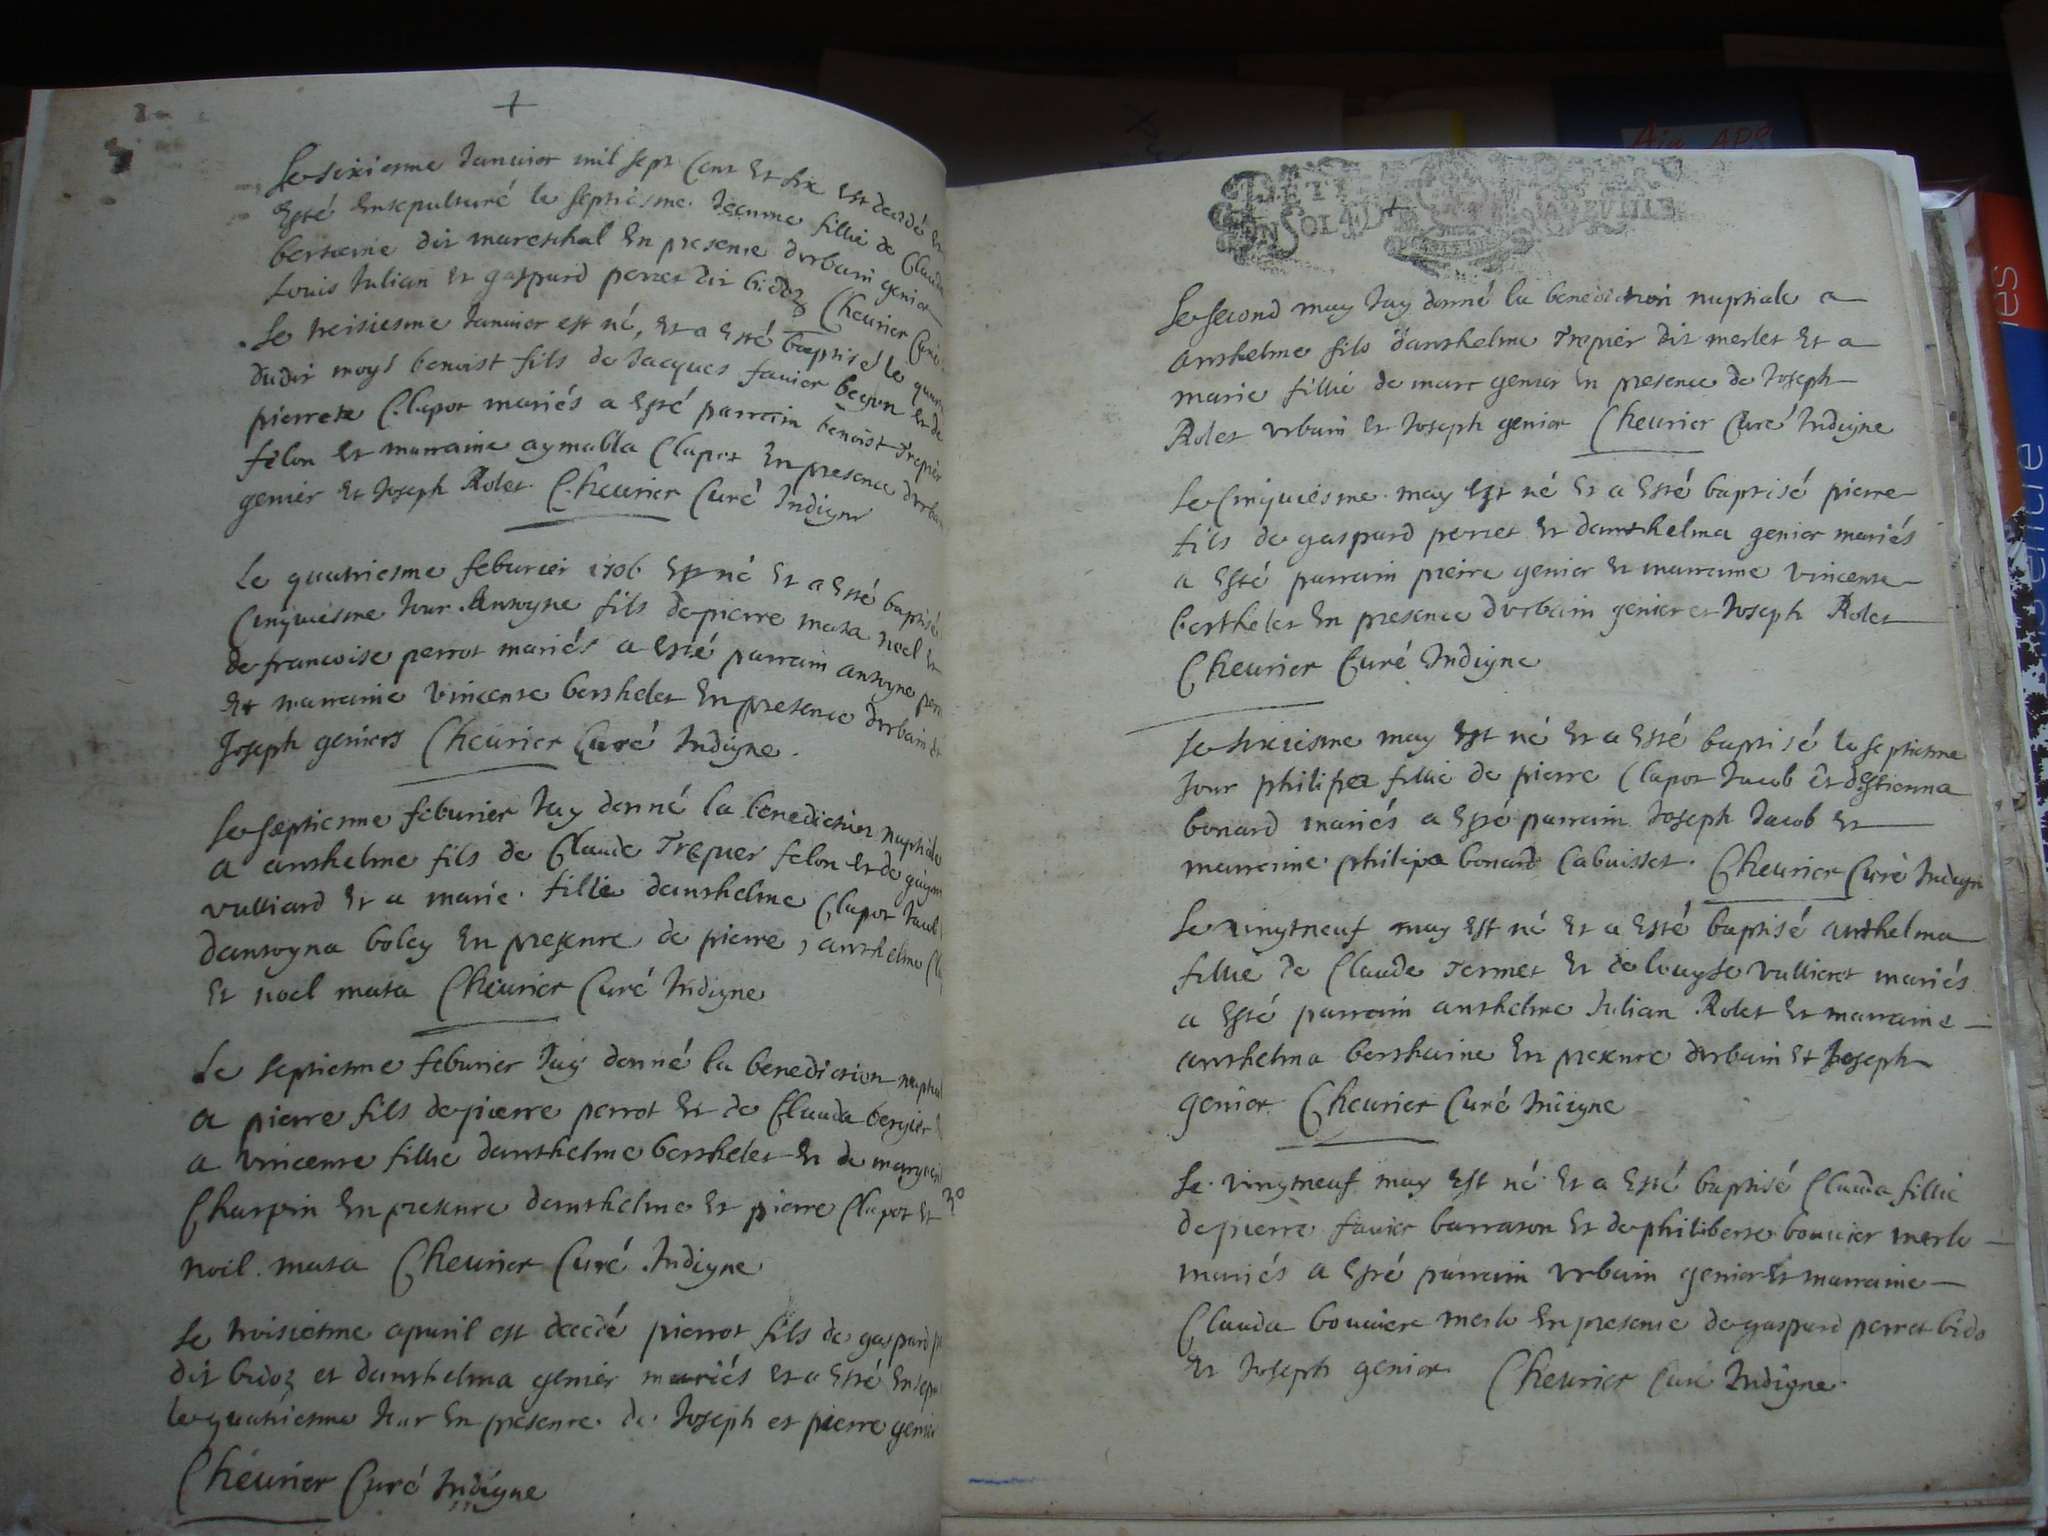 Le sixiesme Januier mil sept Cent Et six Est decedé Et
Esté Ensepulturé le septiesme Jeanne fillie de Claude
bertaine dit mareschal En presence durbain genier
Louis Julian Et gaspard perret dit bidoz Cheurier Curé
Le treisiesme Januier est né, Et a Esté baptisé le
dudit moys benoist fils de Jacques fauier begon Et de
pierrete Clapot mariés a Esté parrain benoist Trepier
felon Et marraine aymabla Clapot En presence durbain
genier Et Joseph Rolet Cheurier Curé Indigne
Le quatriesme feburier 1706 Est né Et a Esté baptisé
Cinquiesme Jour Antoyne fils de pierre mata noel Et
de francoise perrot mariés a Esté parrain antoyne
Et marraine vincente berthelet En presence durbain Et
Joseph geniers Cheurier Curé Indigne
Le septiesme feburier Jay donné la benediction nuptiale
a anthelme fils de Claude Trepier felon Et de
vulliard Et a marie fillie danthelme Clapot
dantoyna boley En presence de pierre, anthelme
Et noel mata Cheurier Curé Indigne
Le septiesme feburier Jay donné la benediction
a pierre fils de pierre perrot Et de Clauda bergier
a vincente fillie danthelme berthelet Et de
Charpin En presence danthelme Et pierre Clapot Et
noel mata Cheurier Curé Indigne
Le troisiesme apuril est decedé pierrot fils de gaspard
dit bidoz et danthelma genier mariés Et a Esté
le quatriesme Jour En presence de Joseph et pierre
Cheurier Curé Indigne
Le second may Jay donné la benediction nuptiale a
anthelme fils danthelme Trepier dit merlet Et a
marie fillie de marc genier En presence de Joseph
Rolet vrbain Et Joseph genier Cheurier Curé Indigne
Le Cinquiesme may Est né Et a Esté baptisé pierre
fils de gaspard perret Et danthelma genier mariés
a Esté parrain pierre genier Et marraine vincente
berthelet En presence durbain genier et Joseph Rolet
Cheurier Curé Indigne
Le sixiesme may Est né Et a Esté baptisé le septiesme
Jour philipea fillie de pierre Clapot Jacob Et destienna
bonard mariés a Esté parrain Joseph Jacob Et
marraine philipa bonard Cabuisset Cheurier Curé Indigne
Le vingtneuf may Est né Et a Esté baptisé anthelma
fillie de Claude Termet Et de louyse vullieret mariés
a Esté parrain anthelme Julian Rolet Et marraine
anthelma berthaine En presence durbain Et Joseph
genier Cheurier Curé Indigne
Le vingtneuf may Est né Et a Esté baptisé Clauda fillie
de pierre fauier barrason Et de philiberte bouuier merle
mariés a Esté parrain vrbain genier Et marraine
Clauda bouuiere merle En presence de gaspard perret bido
Et Joseph genier Cheurier Curé Indigne